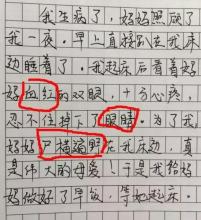 我生病了，妈妈照顾了
我一夜。早上直接趴在我床
边睡着了。我起床后看着妈
妈血红的双眼，十分心疼，
忍不住掉下了眼睛。为了我
妈妈尸横遍野在我床边，真
是伟大的母爱！于是我给妈
妈做好了早饭，等她起床。